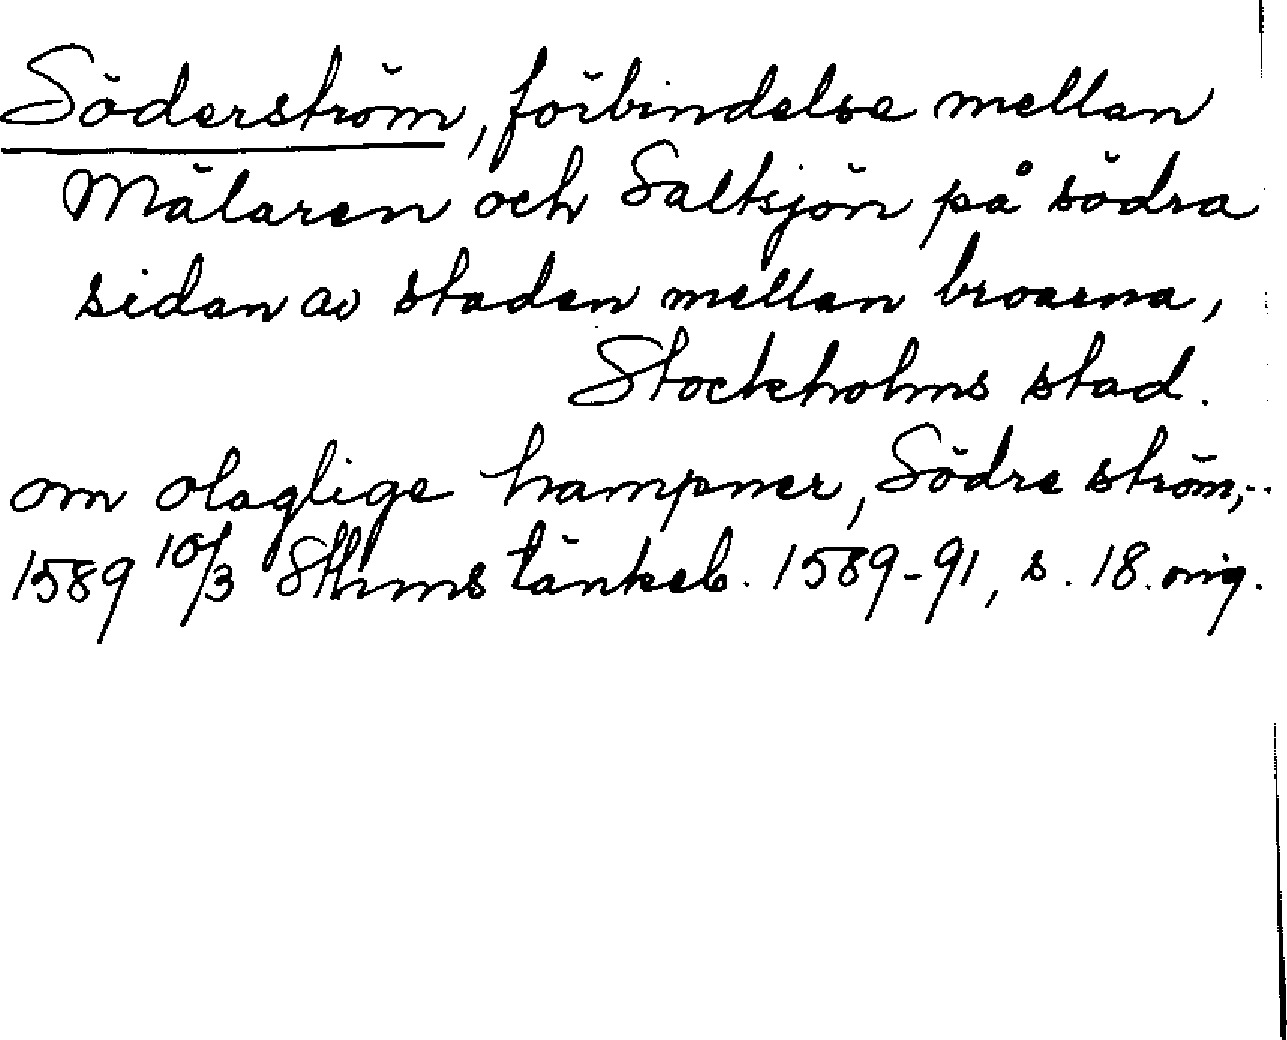 Söderström, förbindelse mellan
Mälaren och Saltsjön på södra
sidan av staden mellan broarna,
Stockholms stad.
om olaglige hampner, Södre ström,..
1589 10/3 Sthms tänkeb. 1589-91, s. 18. orig.